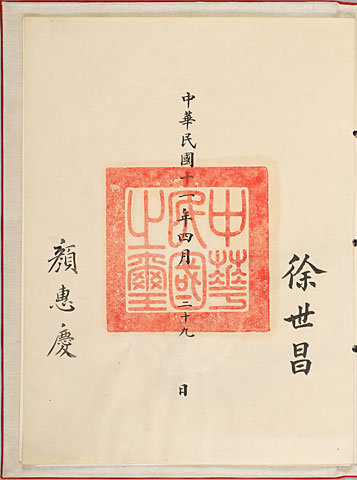 徐世昌
中華民國十一年四月二十九日
中華民國之璽
顏惠慶